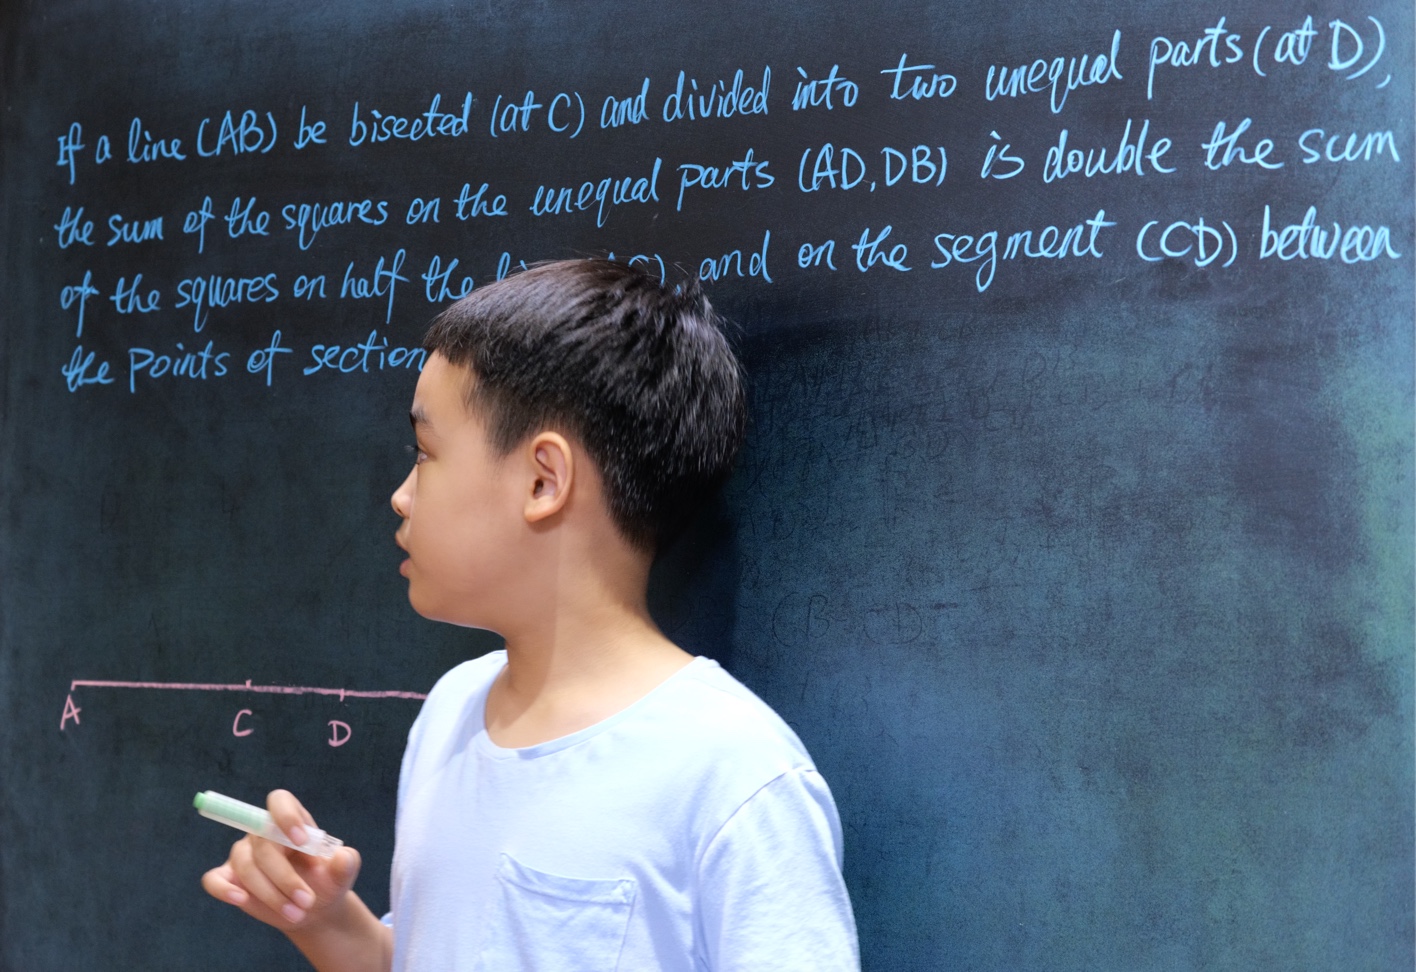 If a line (AB) be bisected (at C) and divided into two unequal parts (at D),
the sum of the squares on the unequal parts (AD, DB) is double the sum
of the squares on half the and on the segment (CD) between
the points of section
A C D